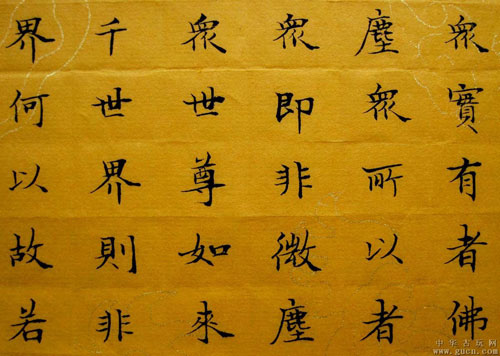 衆實有者佛
塵衆所以者
衆即非微塵
衆世尊如來
千世界則非
界何以故若
中华古玩网
www.gucn.com